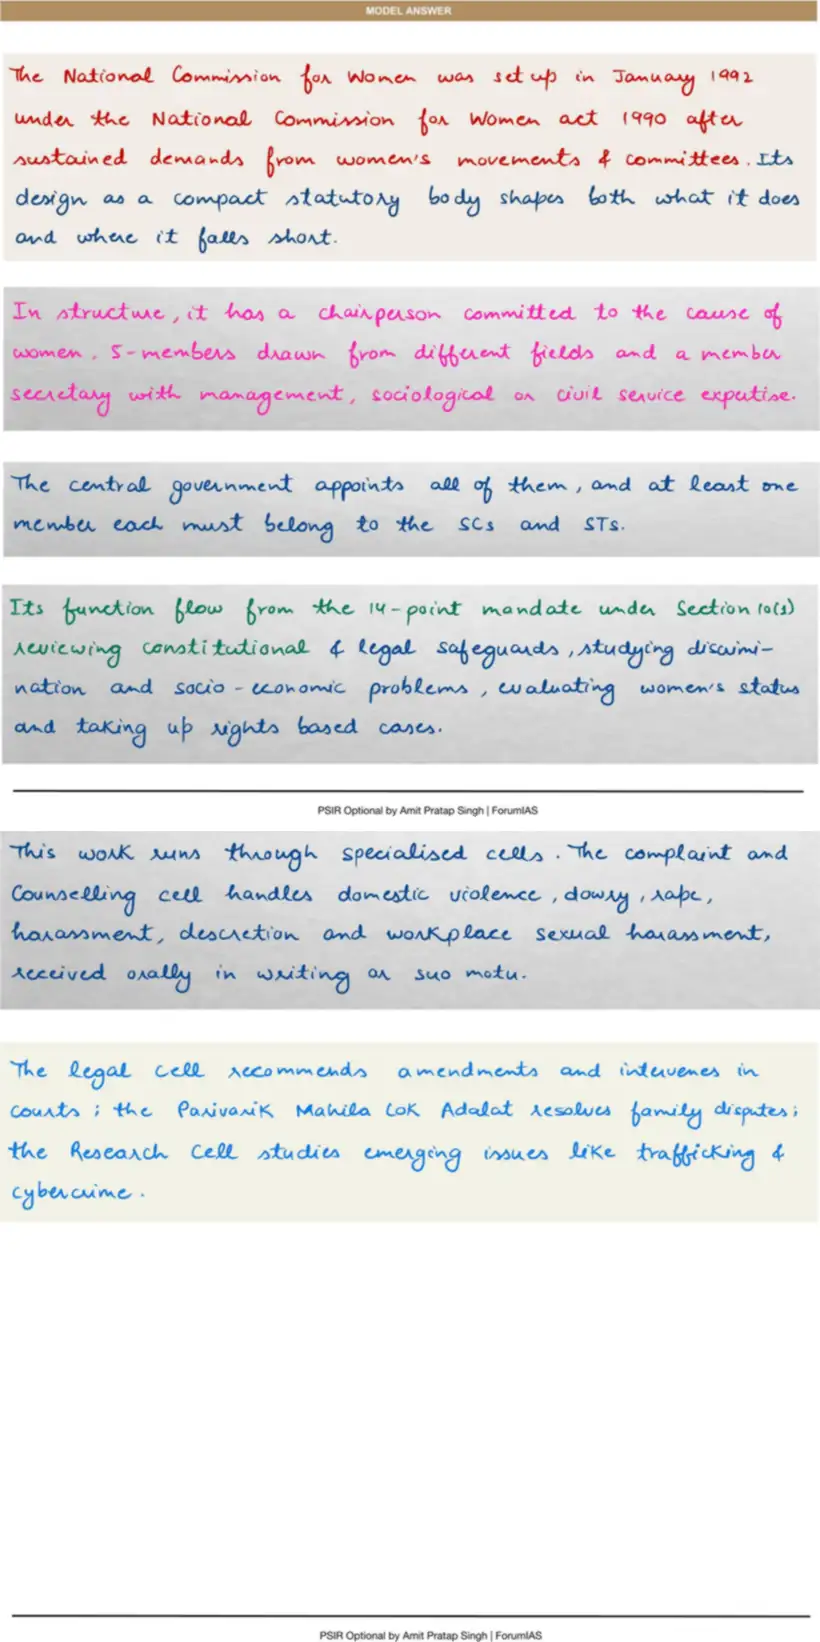 MODEL ANSWER
The National Commission for Women was set up in January 1992
under the National Commission for Women act 1990 after
sustained demands from women's movements & committees. Its
design as a compact statutory body shapes both what it does
and where it falls short.
In structure, it has a chairperson committed to the cause of
women, 5-members drawn from different fields and a member
secretary with management, sociological or civil service expertise.
The central government appoints all of them, and at least one
member each must belong to the SCs and STs.
Its function flow from the 14-point mandate under Section 10(1)
reviewing constitutional & legal safeguards, studying discrimi-
nation and socio-economic problems, evaluating women's status
and taking up rights based cases.
PSIR Optional by Amit Pratap Singh | ForumIAS
This work runs through specialised cells. The complaint and
Counselling cell handles domestic violence, dowry, rape,
harassment, descretion and workplace sexual harassment,
received orally in writing or suo motu.
The legal cell recommends amendments and intervenes in
courts; the Parivarik Mahila Lok Adalat resolves family disputes;
the Research Cell studies emerging issues like trafficking &
cybercrime.
PSIR Optional by Amit Pratap Singh | ForumIAS